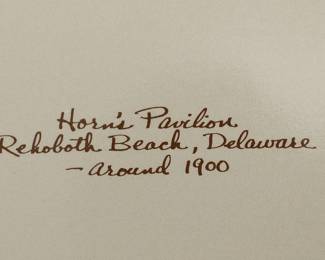 Horn's Pavilion
Rehoboth Beach, Delaware
- around 1900